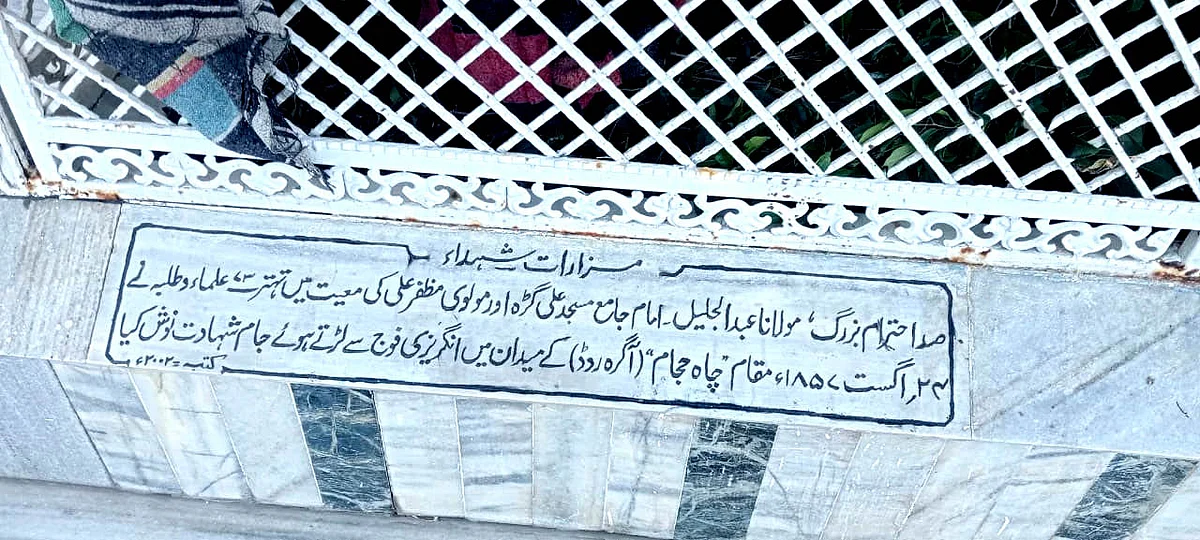 مزارات شہداء
صد احترام بزرگ، مولانا عبدالجلیل۔ امام جامع مسجد علی گڑھ اور مولوی مظفر علی کی معیت میں تہتر ۷۳ علماء و طلبہ نے
۲۴؍ اگست ۱۸۵۷ء مقام "چاہ حجام" (آگرہ روڈ) کے میدان میں انگریزی فوج سے لڑتے ہوئے جام شہادت نوش کیا
کتبہ ۲۰۰۲ء